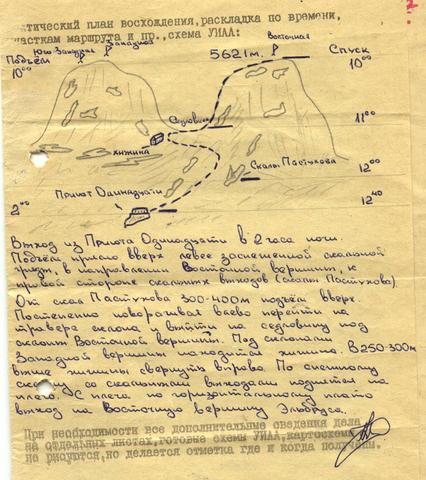 тический план восхождения, раскладка по времени,
участкам маршрута и пр., схема УИАА:
Западная
Восточная
Подъём
5621м.
Спуск
10⁰⁰
10⁰⁰
Седловина
11⁰⁰
хижина
Скалы Пастухова
12⁰⁰
Приют Одинадцати
2⁰⁰
12⁴⁰
Выход из Приюта Одинадцати в 2 часа ночи.
Подъём прямо вверх левее заснеженной скальной
гряды, в направлении Восточной вершины, к
правой стороне скальных выходов (скалы Пастухова).
От скал Пастухова 300-400м подъём вверх.
Постепенно поворачивая влево перейти на
траверс склона и выйти на седловину под
скалами Восточной вершины. Под скалами
Западной вершины находится хижина. В 250-300м
выше хижины свернуть вправо. По снежному
склону со скальными выходами подняться на
плечо. С плеча по горизонтальному плато
выход на Восточную вершину Эльбруса.
При необходимости все дополнительные сведения дела
на отдельных листах, готовые схемы УИАА, картосхемы
не рисуются, но делается отметка где и когда получены.